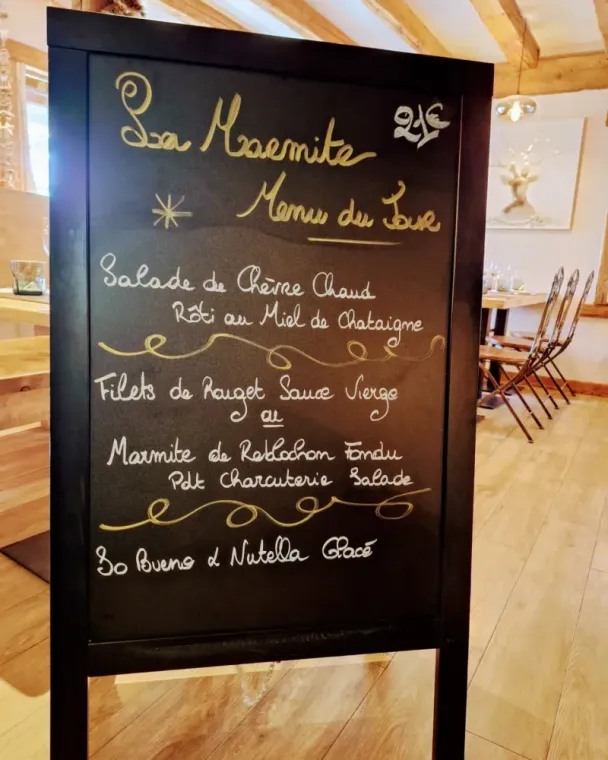 La Marmite
21€
Menu du Jour
Salade de Chèvre Chaud
Rôti au Miel de Chataigne
Filets de Rouget Sauce Vierge
ou
Marmite de Reblochon Fondu
Pdt Charcuterie Salade
So Bueno & Nutella Glacé